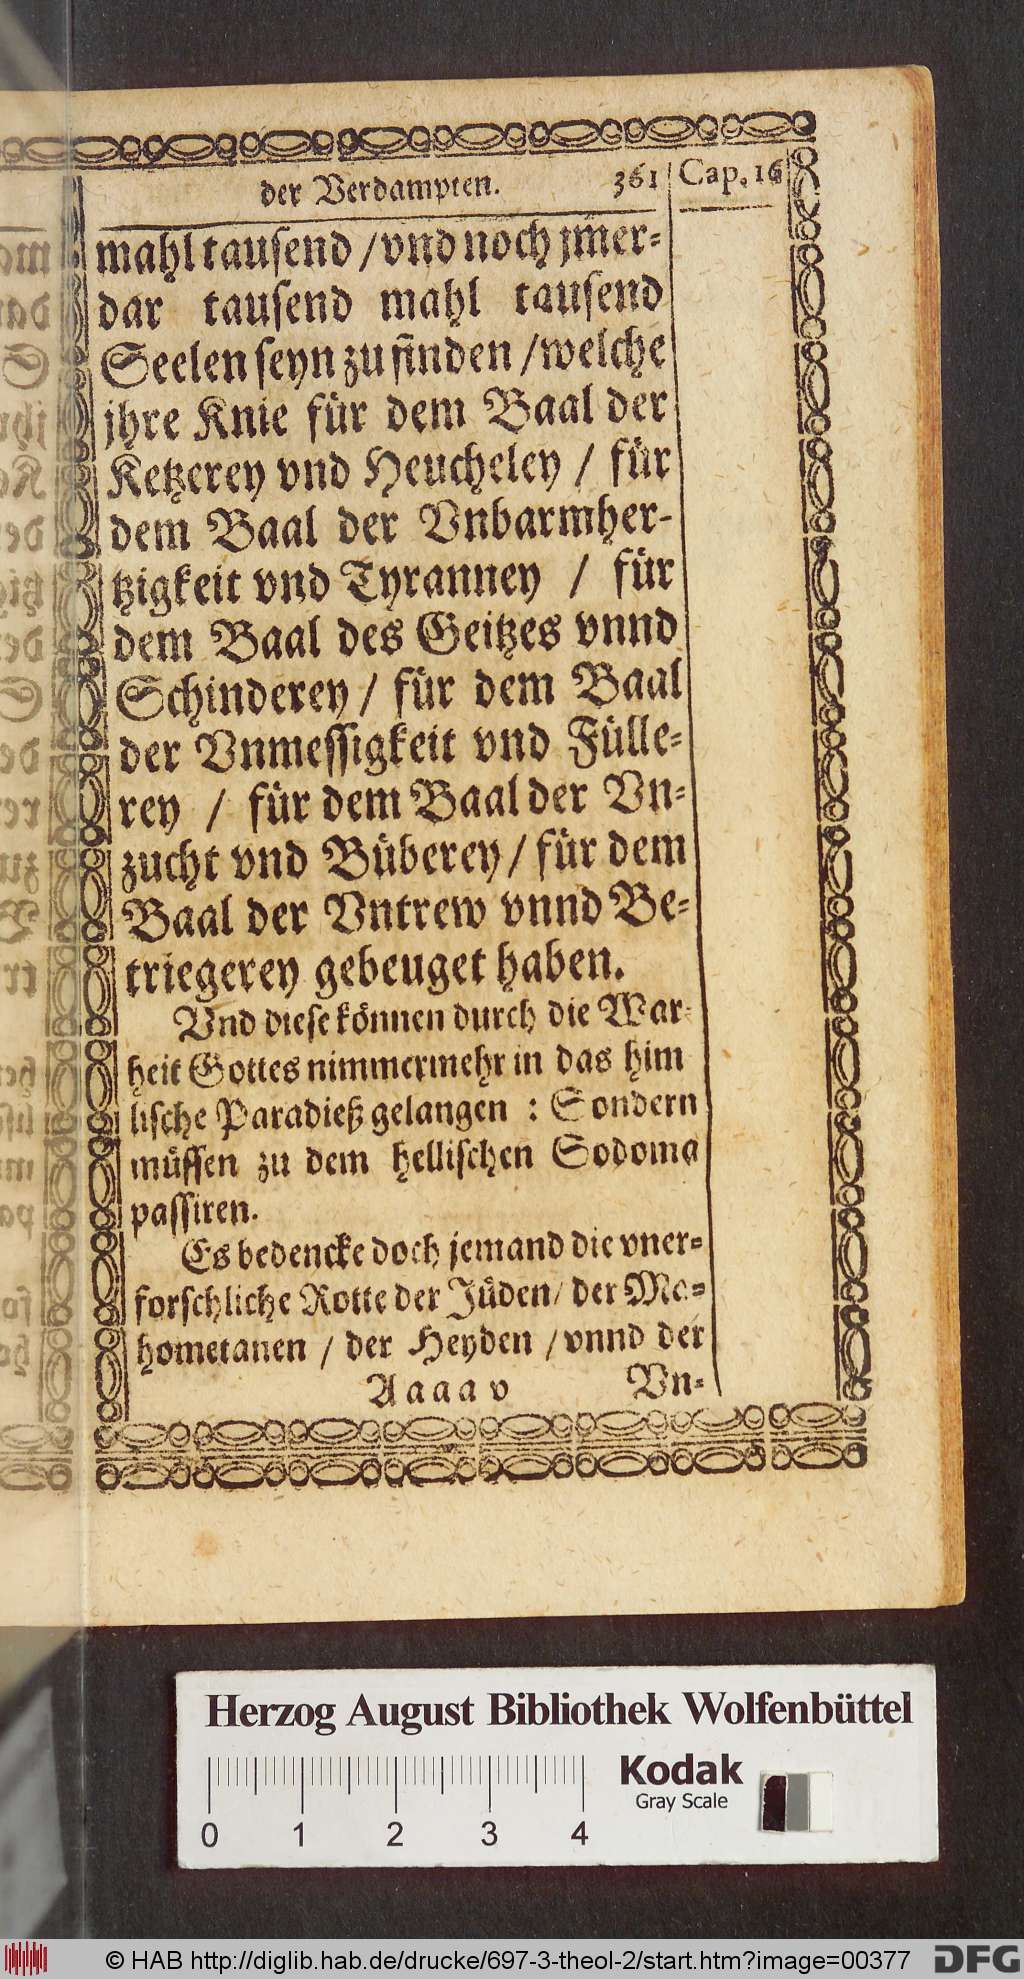 der Verdampten. 361 Cap. 16
mahl tausend / vnd noch jm̃er-
dar tausend mahl tausend
Seelen seyn zu finden / welche
jhre Knie für dem Baal der
Ketzerey vnd Heucheley / für
dem Baal der Vnbarmher-
tzigkeit vnd Tyranney / für
dem Baal des Geitzes vnnd
Schinderey / für dem Baal
der Vnmessigkeit vnd Fülle-
rey / für dem Baal der Vn-
zucht vnd Büberey / für dem
Baal der Vntrew vnnd Be-
triegerey gebeuget haben.
Vnd diese können durch die War-
heit Gottes nimmermehr in das him
lische Paradieß gelangen : Sondern
müssen zu dem hellischen Sodoma
passiren.
Es bedencke doch jemand die vner-
forschliche Rotte der Jüden / der Ma-
hometanen / der Heyden / vnnd der
Aaaa v Vn-
Herzog August Bibliothek Wolfenbüttel
Kodak
Gray Scale
0 1 2 3 4
© HAB http://diglib.hab.de/drucke/697-3-theol-2/start.htm?image=00377 DFG